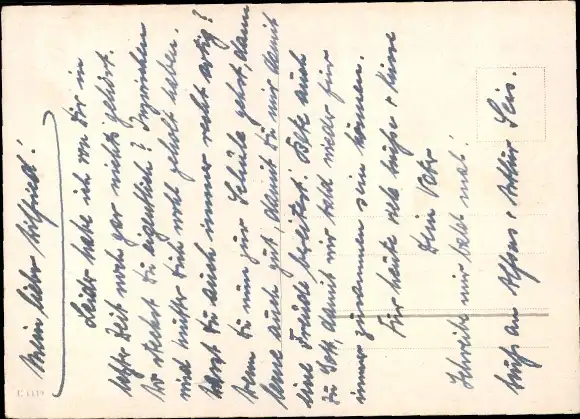 Mein lieber Wilfried!
Leider habe ich von Dir in
letzter Zeit noch gar nichts gehört.
Wo steckst Du eigentlich? Inzwischen
wird Mutter Dich wohl geholt haben.
Warst Du auch immer recht artig?
Wenn Du nun zur Schule gehst, dann
lerne auch gut, damit Du mir damit
eine Freude bereitest. Bete auch
zu Gott, damit wir bald wieder für
immer zusammen sein können.
Für heute viele Grüße & Küsse
Dein Vater
Schreibe mir bald mal!
Gruß an Alfons & Arthur